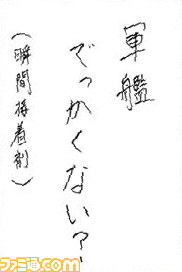 「軍艦
でっかくない?」
(瞬間接着剤)
ファミ通.com